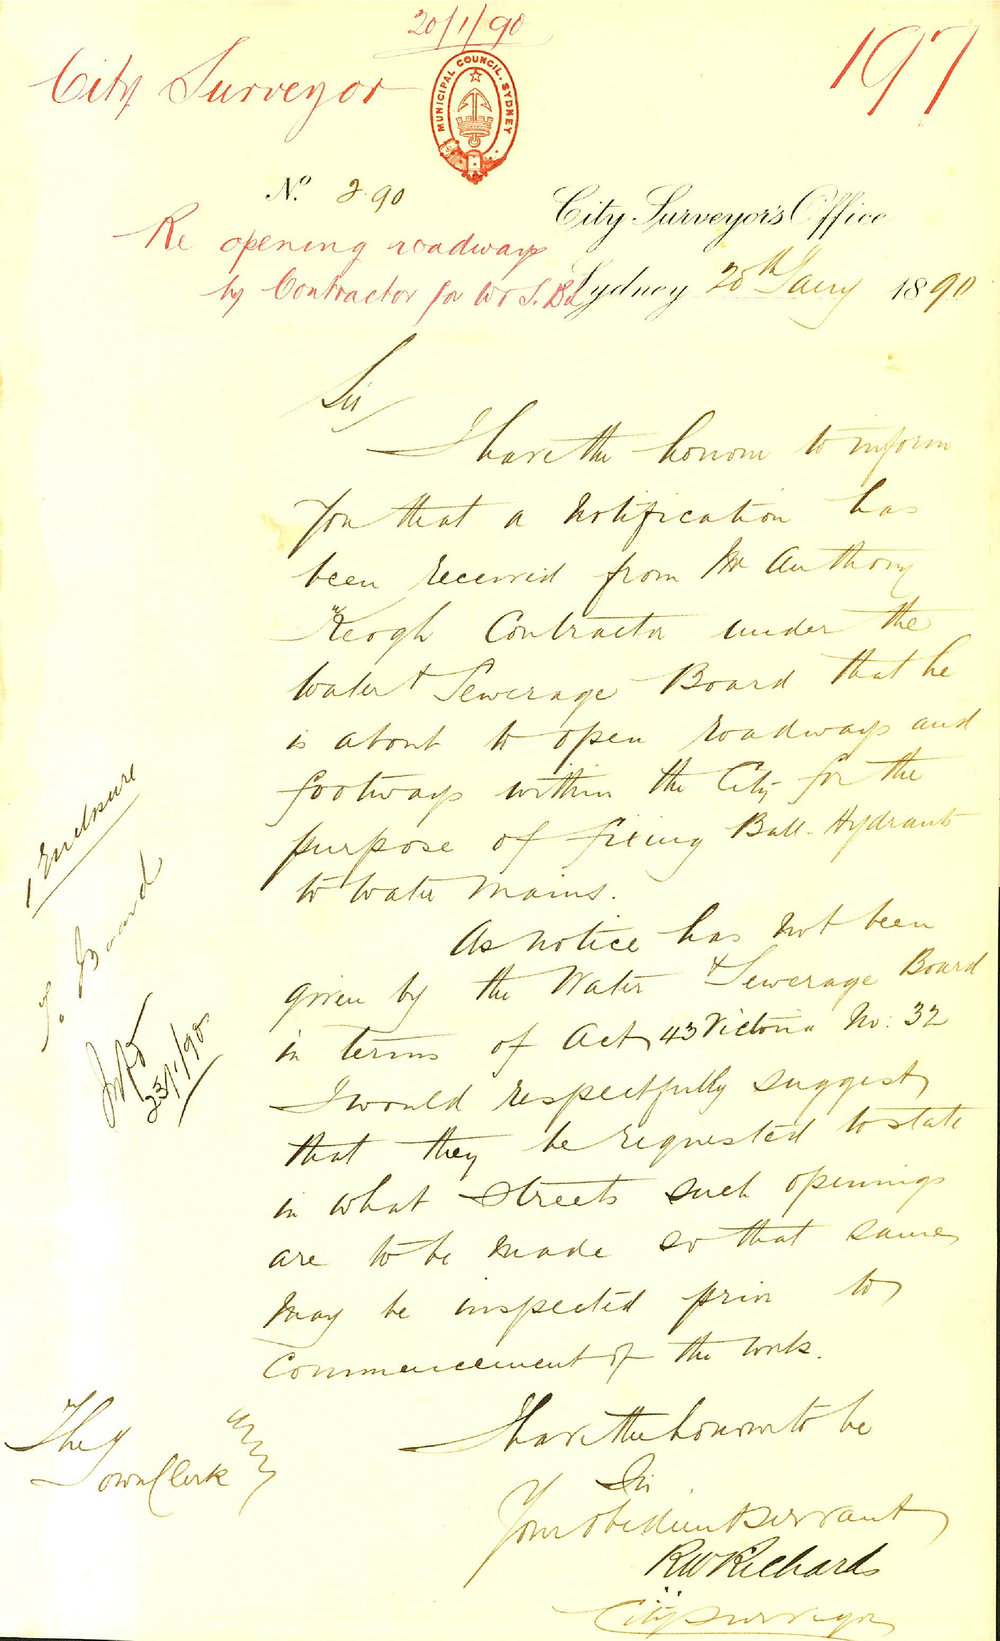 20/1/90
197
City Surveyor
MUNICIPAL COUNCIL. SYDNEY
No. 290
City Surveyor's Office
Re opening roadways
by Contractor for W & S. Bd
Sydney 20th Jany 1890
Sir
I have the honour to inform
you that a notification has
been received from Mr Anthony
Keogh Contractor under the
Water & Sewerage Board that he
is about to open roadways and
footways within the City for the
purpose of fixing Ball-Hydrants
to water mains.
As notice has not been
given by the Water & Sewerage Board
in terms of Act 43 Victoria No: 32
I would respectfully suggest
that they be requested to state
in what streets such openings
are to be made so that same
may be inspected prior to
commencement of the work.
I have the honour to be
Sir
Your obedient servant
RW Richards
City Surveyor
The
Town Clerk
1 Enclosure
To Board
23/1/90.